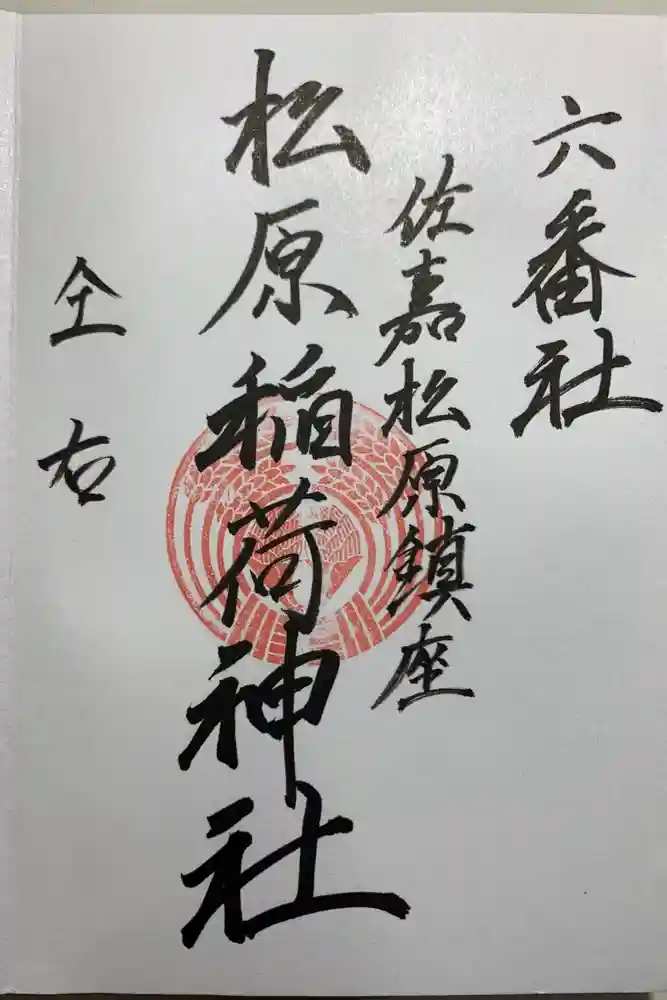 六番社
佐嘉松原鎮座
松原稲荷神社
仝右